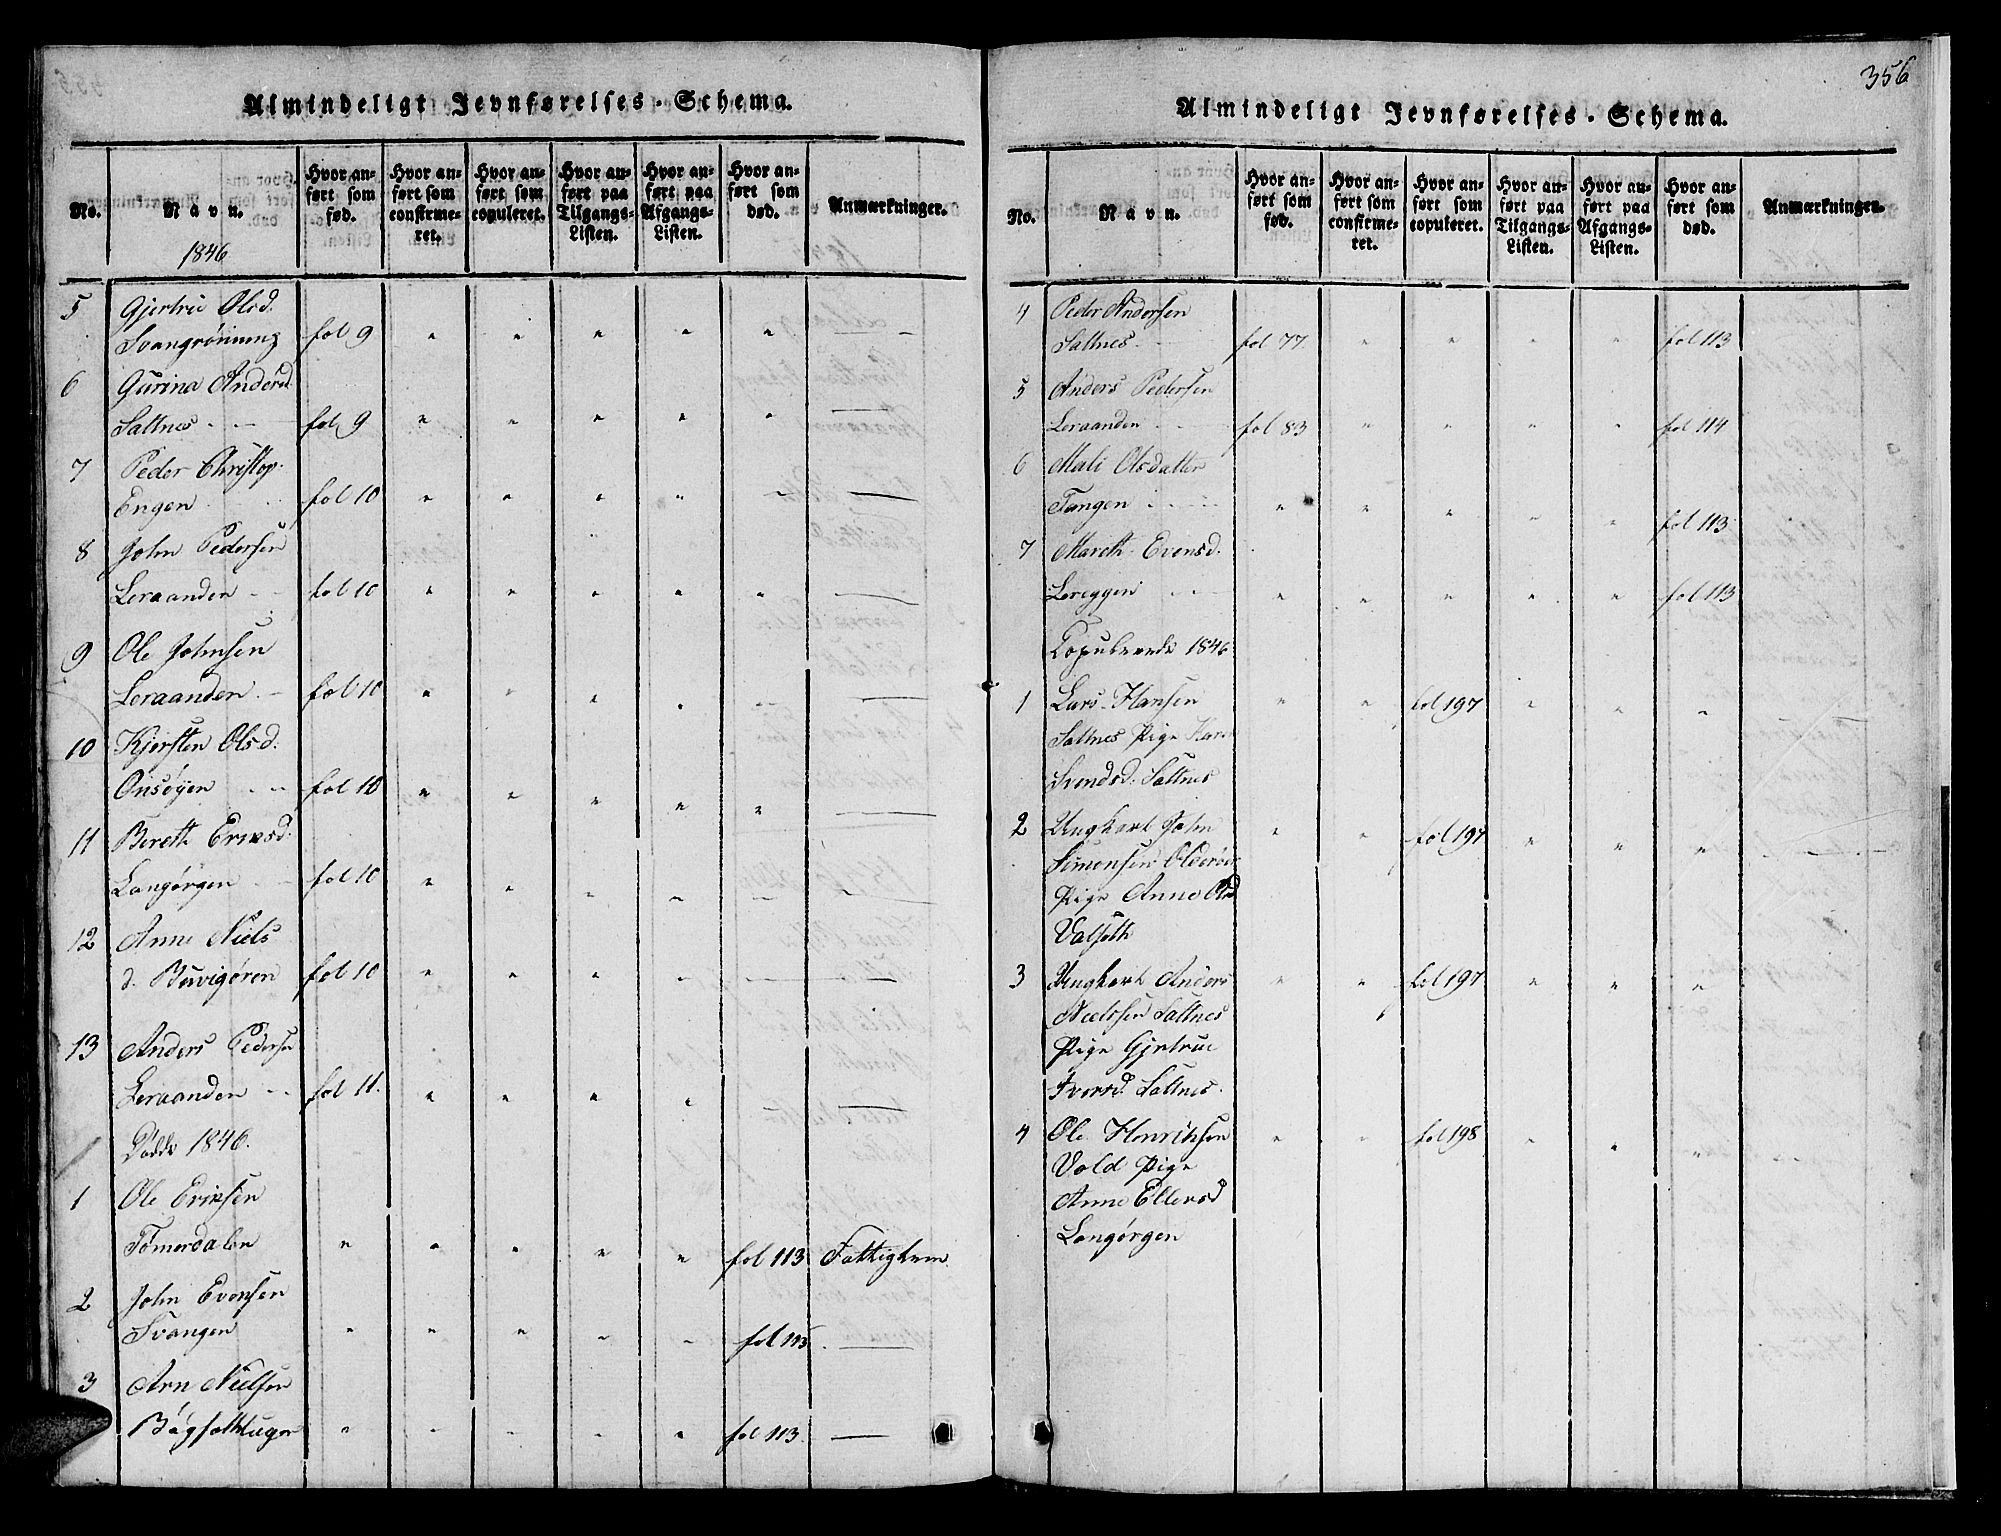 Almindeligt Jevnførelses-Schema.
No. Navn. Hvor anført som fød. Hvor anført som confirmeret. Hvor anført som copuleret. Hvor anført paa Tilgangs-Listen. Hvor anført paa Afgangs-Listen. Hvor anført som død. Anmærkninger.
1846
5 Gjertrue Olsd.
Svangrønning fol 9 " " " " " —
6 Gurina Andersd.
Saltnes fol 9 " " " " " —
7 Peder Christop.
Engen fol 10 " " " " " —
8 John Pedersen
Leraanden fol 10 " " " " " —
9 Ole Johnsen
Leraanden fol 10 " " " " " —
10 Kjersten Olsd.
Onsøyen fol 10 " " " " " —
11 Bereth Eriksd.
Langørgen fol 10 " " " " " —
12 Anne Niels
d. Buvigøren fol 10 " " " " " —
13 Anders Pedersen
Leraanden fol 11. " " " " " —
Dødde 1846.
1 Ole Eriksen
Tømerdalen " " " " " fol 113 Fattiglem
2 John Evensen
Svangen " " " " " fol 113. —
3 Arn Nielsen
" " " " " fol 113. —
356
Almindeligt Jevnførelses-Schema.
No. Navn. Hvor anført som fød. Hvor anført som confirmeret. Hvor anført som copuleret. Hvor anført paa Tilgangs-Listen. Hvor anført paa Afgangs-Listen. Hvor anført som død. Anmærkninger.
4 Peder Andersen
Saltnes fol 77. " " " " fol 113
5 Anders Pedersen
Leraanden fol 83 " " " " fol 114
6 Mali Olsdatter
Tangen " " " " " fol 113
7 Mareth Evensd.
Lereggen " " " " " fol 113
Copulerede 1846
1 Lars Hansen " " fol 197 " " "
Saltnes Pige Karen
Svendsd. Saltnes
2 Ungkarl John " " fol 197 " " "
Simonsen Olderøen
Pige Anne Olsd
Valseth
3 Ungkarl Anders " " fol 197 " " "
Nielssen Saltnes
Pige Gjertrue
Iversd. Saltnes.
4 Ole Henriksen " " fol 198 " " "
Vold Pige
Anne Ellevsd
Langørgen